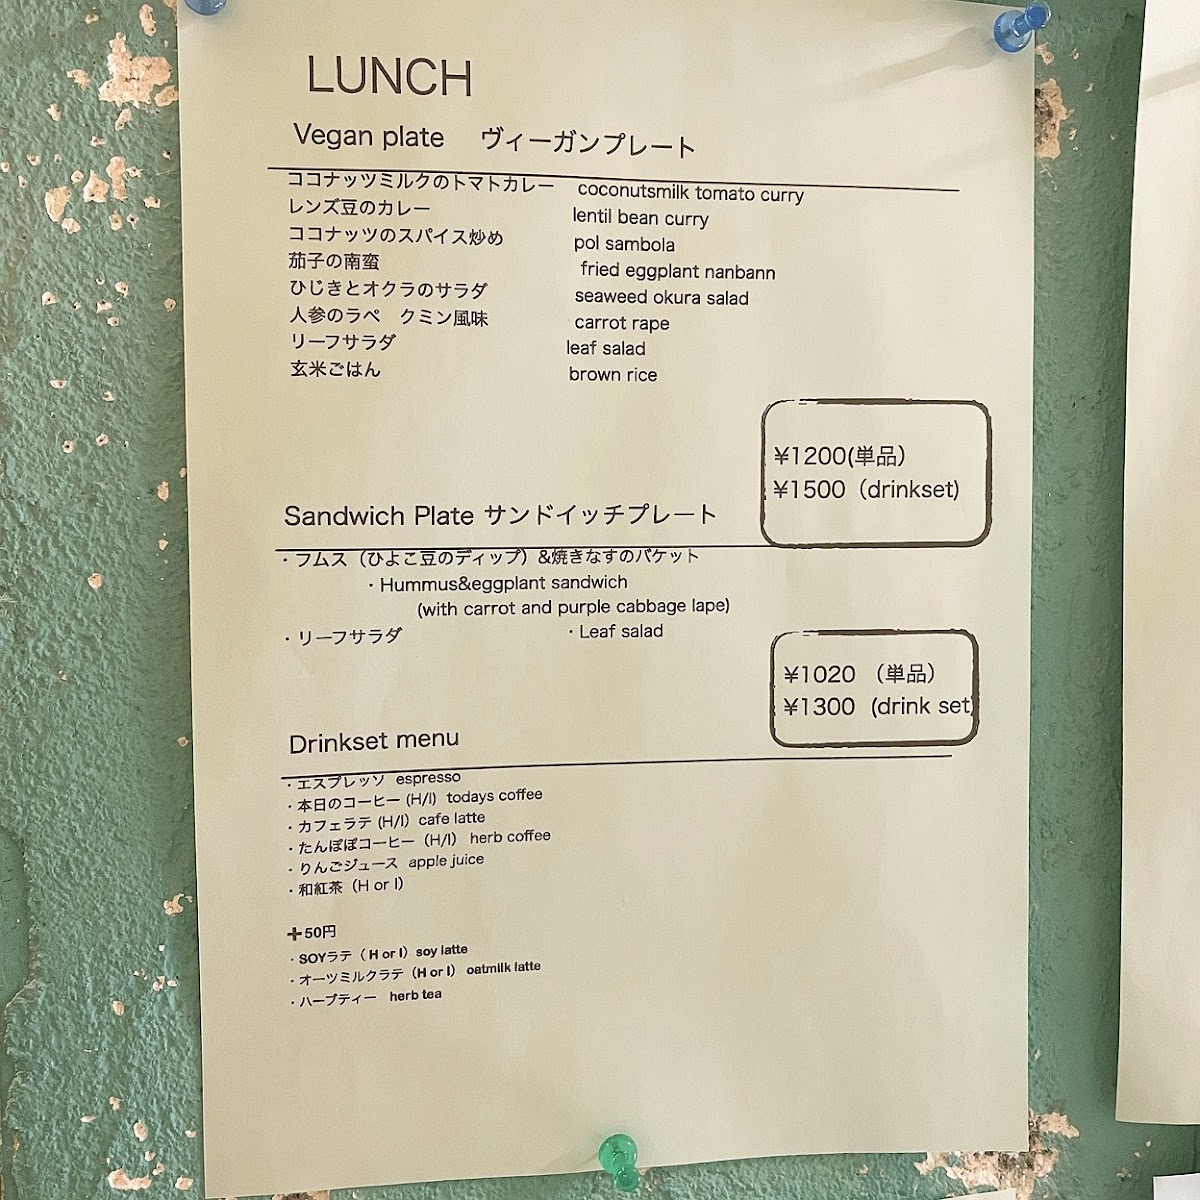 LUNCH
Vegan plate ヴィーガンプレート
ココナッツミルクのトマトカレー coconutsmilk tomato curry
レンズ豆のカレー lentil bean curry
ココナッツのスパイス炒め pol sambola
茄子の南蛮 fried eggplant nanbann
ひじきとオクラのサラダ seaweed okura salad
人参のラペ クミン風味 carrot rape
リーフサラダ leaf salad
玄米ごはん brown rice
¥1200(単品)
¥1500（drinkset)
Sandwich Plate サンドイッチプレート
・フムス（ひよこ豆のディップ）&焼きなすのバケット
・Hummus&eggplant sandwich
(with carrot and purple cabbage lape)
・リーフサラダ ・Leaf salad
¥1020 （単品）
¥1300 (drink set)
Drinkset menu
・エスプレッソ espresso
・本日のコーヒー (H/I) todays coffee
・カフェラテ (H/I) cafe latte
・たんぽぽコーヒー（H/I） herb coffee
・りんごジュース apple juice
・和紅茶（H or I）
＋50円
・SOYラテ（ H or I）soy latte
・オーツミルクラテ（H or I） oatmilk latte
・ハーブティー herb tea